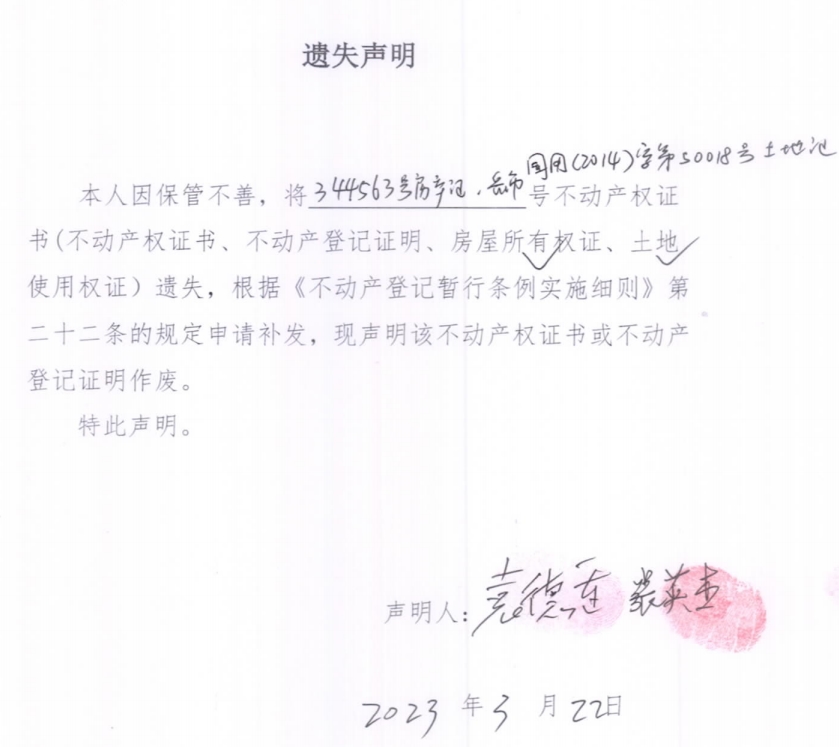 遗失声明
国用(2014)字第S0018号土地证
本人因保管不善，将344563号房产证、岳市号不动产权证
书(不动产权证书、不动产登记证明、房屋所有权证、土地
使用权证）遗失，根据《不动产登记暂行条例实施细则》第
二十二条的规定申请补发，现声明该不动产权证书或不动产
登记证明作废。
特此声明。
声明人：袁德莲 裴英杰
2023年3月22日